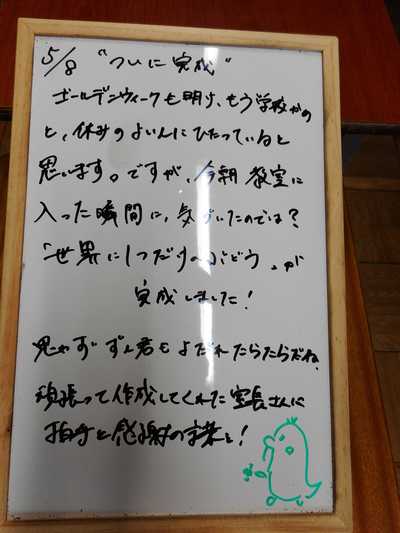 5/8 "ついに完成"
ゴールデンウィークも明け、もう学校かの
と、休みのよいんにひたっていると
思います。ですが、今朝教室に
入った瞬間に、気づいたのでは?
「世界に1つだけのぶどう」が
完成しました!
思わずずん君もよだれたらたらだね。
頑張って作成してくれた室長さんに
拍手と感謝の言葉を!